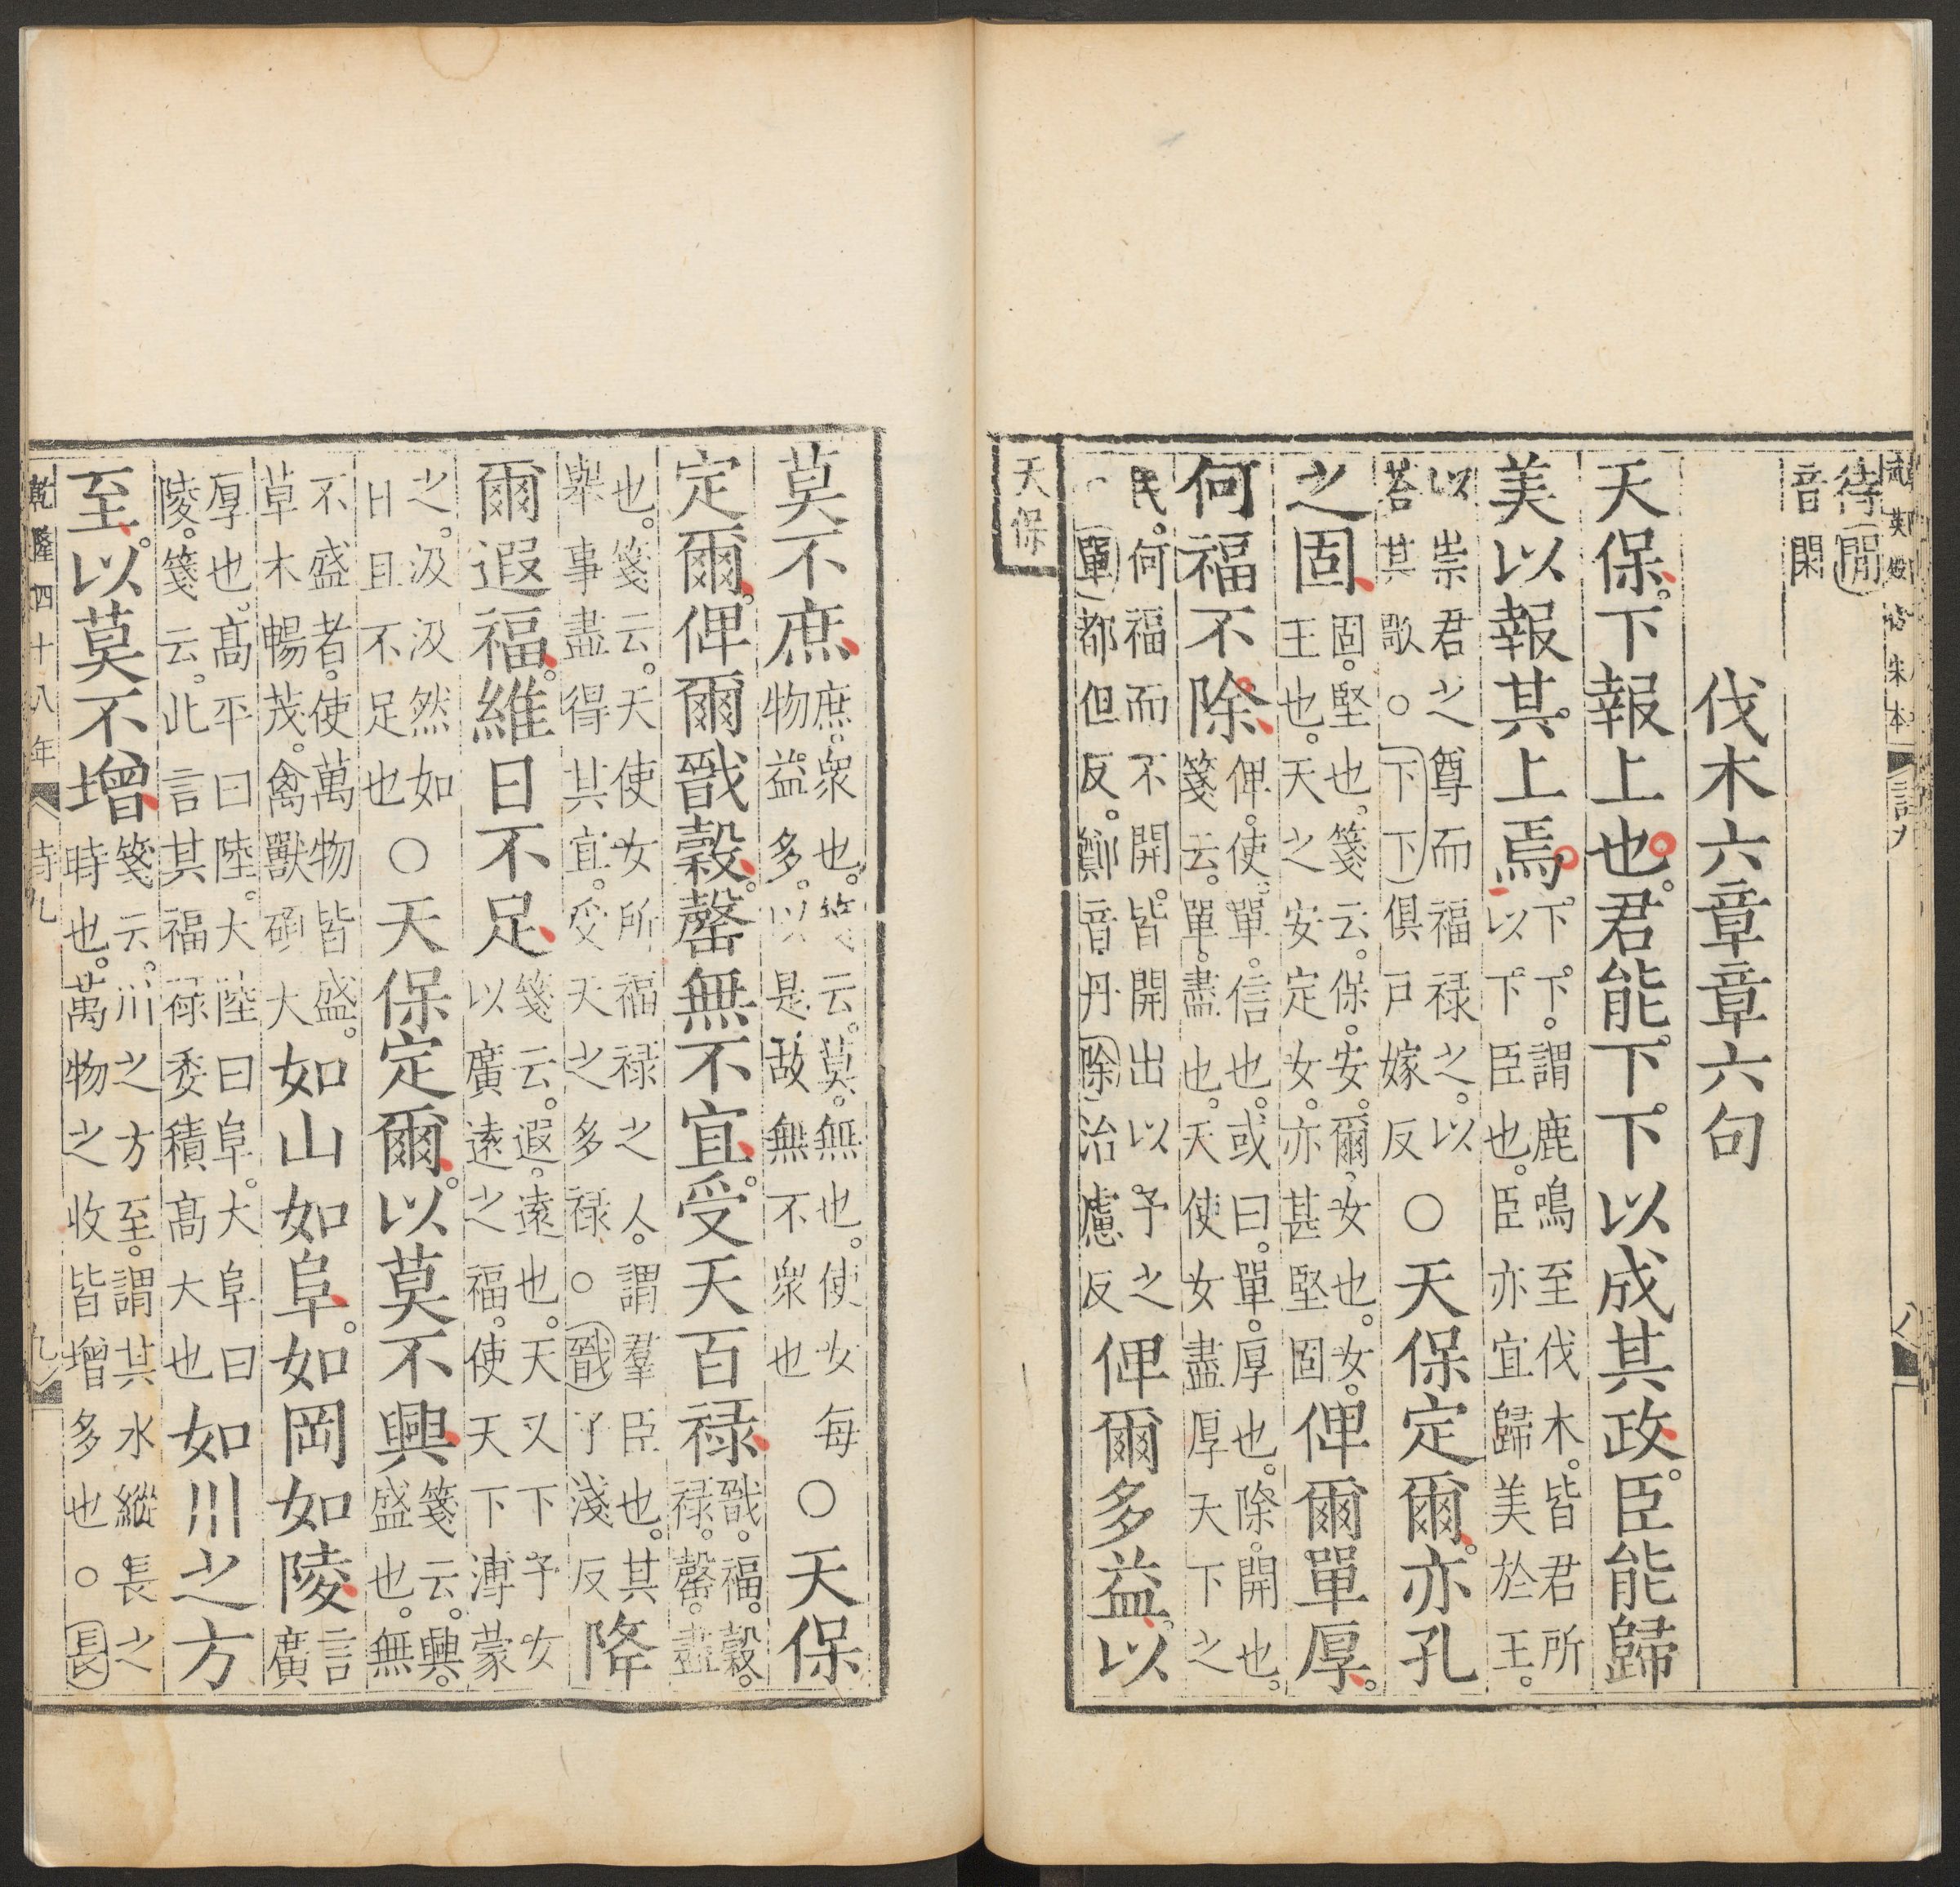 武英殿仿宋本 詩九 八
待閒
音閑
伐木六章章六句
天保。下報上也。君能下下以成其政。臣能歸
美以報其上焉。下下。謂鹿鳴至伐木。皆君所
以下臣也。臣亦宜歸美於王。
以崇君之尊而福祿之。以
荅其歌○下下俱戸嫁反○天保定爾。亦孔
之固。固。堅也。箋云。保。安。爾。女也。女。
王也。天之安定女。亦甚堅固俾爾單厚。
何福不除。俾。使。單。信也。或曰。單。厚也。除。開也。
箋云。單。盡也。天使女盡厚天下之
民。何福而不開。皆開出以予之
單都但反。鄭音丹除治慮反俾爾多益。以
天保
莫不庶。庶。衆也。箋云。莫。無也。使女每
物益多。以是故無不衆也○天保
定爾。俾爾戩穀。罄無不宜。受天百祿。戩。福。穀。
祿。罄。盡
也。箋云。天使女所福祿之人。謂羣臣也。其
舉事盡得其宜。受天之多祿○戩子淺反降
爾遐福。維日不足。箋云。遐。遠也。天又下予女
以廣遠之福。使天下溥蒙
之。汲汲然如
日且不足也○天保定爾。以莫不興。箋云。興。
盛也。無
不盛者。使萬物皆盛。
草木暢茂。禽獸碩大如山如阜。如岡如陵。言
廣
厚也。高平曰陸。大陸曰阜。大阜曰
陵。箋云。此言其福祿委積高大也如川之方
至。以莫不增。箋云。川之方至。謂其水縱長之
時也。萬物之收皆增多也○長
乾隆四十八年 詩九 九